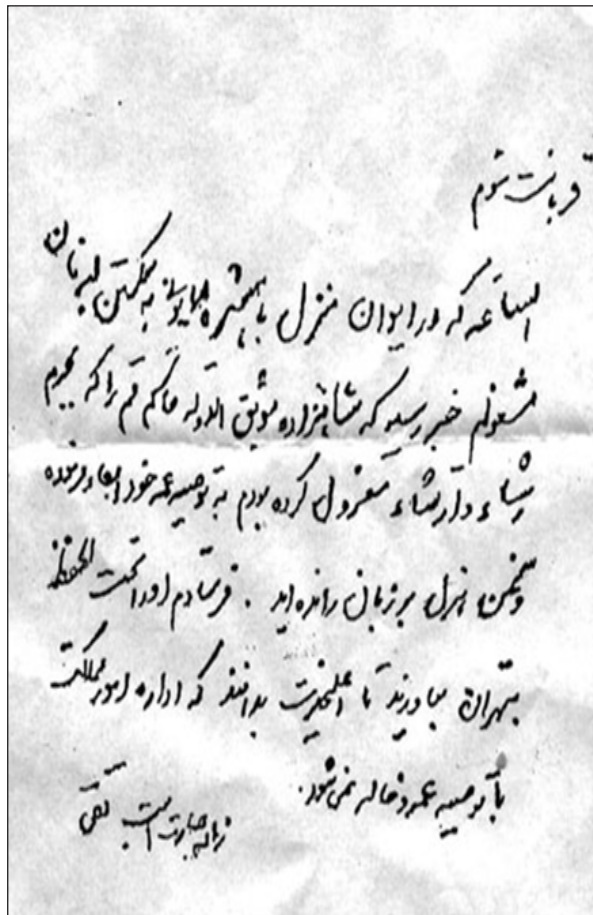 قربانت شوم
الساعه که در ایوان منزل با همشیره همایونی به شکستن لبه نان
مشغولم خبر رسید که شاهزاده موثق الدوله حاکم قم را که بجرم
رشاء و ارتشاء معزول کرده بودم به توصیه عمه خود ابقاء فرموده
و سخن هزل بر زبان رانده اید . فرستادم او را تحت الحفظ
بتهران بیاورند تا اعلیحضرت بدانند که اداره امور مملکت
با توصیه عمه و خاله نمی شود.
زیاده جسارت است تقی